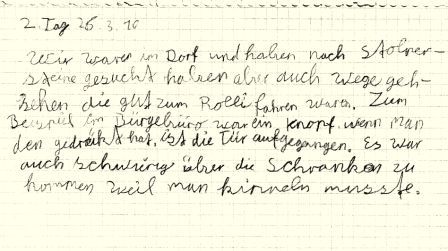 2. Tag 25.3.10
Wir waren im Dorf und haben nach Stolper-
steine gesucht haben aber auch wege geh-
sehen die gut zum Rolli fahren waren. Zum
Beispiel im Bürgebüro war ein knopf wenn man
den gedrükt hat, ist die Tür aufgegangen. Es war
auch schwirig über die Schranken zu
kommen weil man kirneln musste.